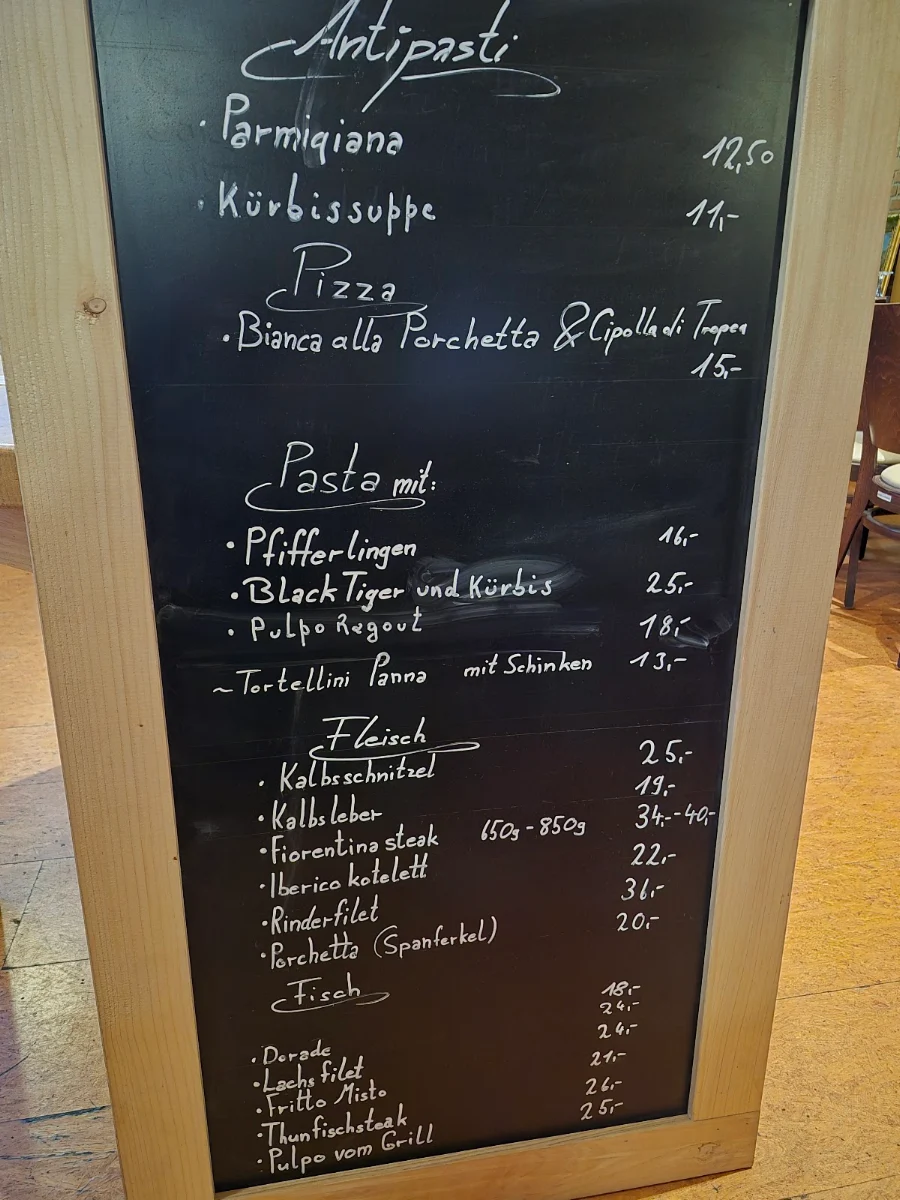 Antipasti
· Parmigiana 12,50
· Kürbissuppe 11,-
Pizza
· Bianca alla Porchetta & Cipolla di Tropea
15,-
Pasta mit:
· Pfifferlingen 16,-
· Black Tiger und Kürbis 25,-
· Pulpo Ragout 18,-
~ Tortellini Panna mit Schinken 13,-
Fleisch
· Kalbsschnitzel 25,-
· Kalbsleber 19,-
· Fiorentina steak 650g - 850g 34,- - 40,-
· Iberico kotelett 22,-
· Rinderfilet 36,-
· Porchetta (Spanferkel) 20,-
Fisch 18,-
· Dorade 24,-
· Lachs filet 24,-
· Fritto Misto 21,-
· Thunfischsteak 26,-
· Pulpo vom Grill 25,-